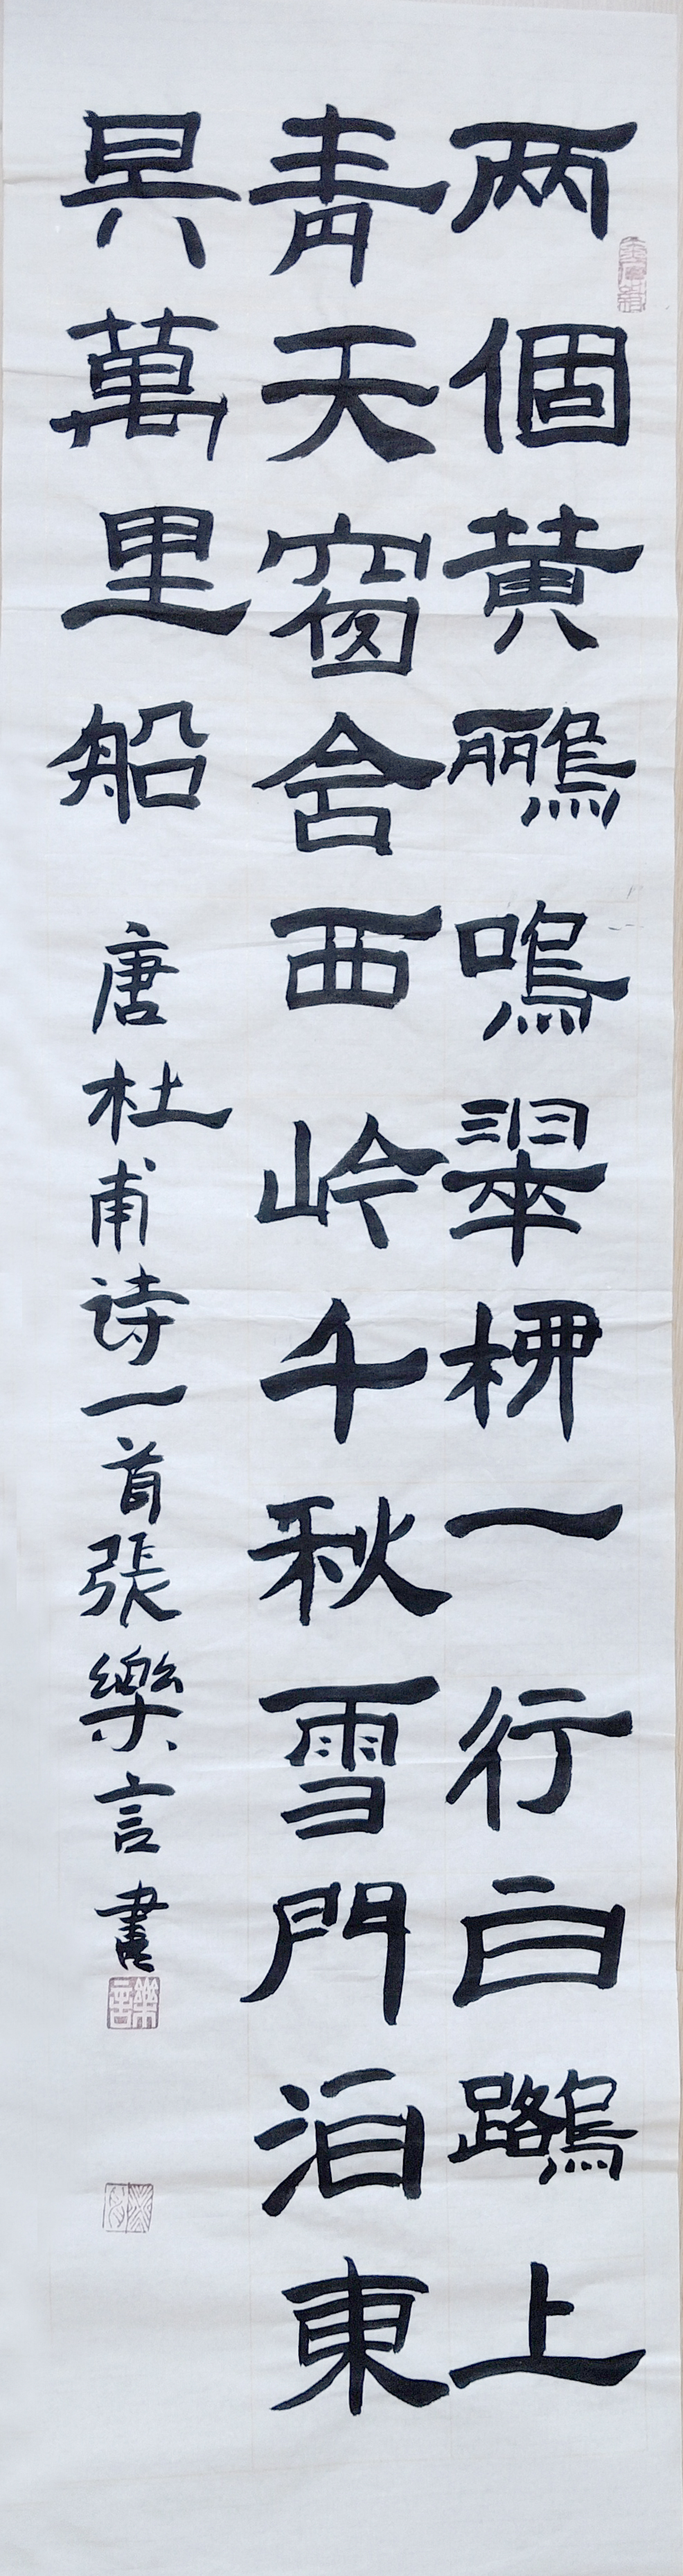 两個黄鸝鳴翠柳一行白鷺上
青天窗含西岭千秋雪門泊東
吴萬里船 唐杜甫诗一首張樂言書
樂言